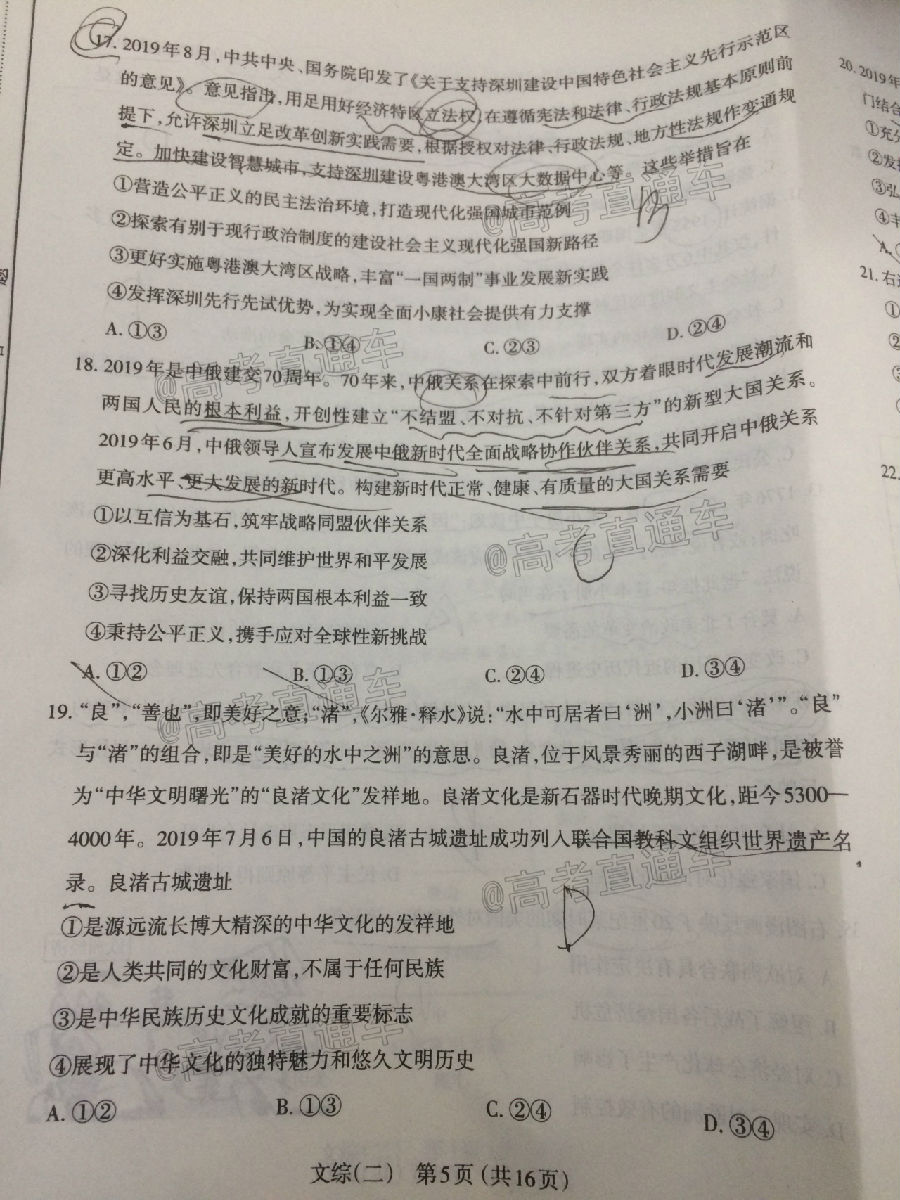 17. 2019年8月,中共中央、国务院印发了《关于支持深圳建设中国特色社会主义先行示范区
的意见》。意见指出,用足用好经济特区立法权,在遵循宪法和法律、行政法规基本原则前
提下,允许深圳立足改革创新实践需要,根据授权对法律、行政法规、地方性法规作变通规
定。加快建设智慧城市,支持深圳建设粤港澳大湾区大数据中心等。这些举措旨在
①营造公平正义的民主法治环境,打造现代化强国城市范例
②探索有别于现行政治制度的建设社会主义现代化强国新路径
③更好实施粤港澳大湾区战略,丰富“一国两制”事业发展新实践
④发挥深圳先行先试优势,为实现全面小康社会提供有力支撑
A. ①③ B. ①④ C. ②③ D. ②④
18. 2019年是中俄建交70周年。70年来,中俄关系在探索中前行,双方着眼时代发展潮流和
两国人民的根本利益,开创性建立“不结盟、不对抗、不针对第三方”的新型大国关系。
2019年6月,中俄领导人宣布发展中俄新时代全面战略协作伙伴关系,共同开启中俄关系
更高水平、更大发展的新时代。构建新时代正常、健康、有质量的大国关系需要
①以互信为基石,筑牢战略同盟伙伴关系
②深化利益交融,共同维护世界和平发展
③寻找历史友谊,保持两国根本利益一致
④秉持公平正义,携手应对全球性新挑战
A. ①② B. ①③ C. ②④ D. ③④
19. “良”,“善也”,即美好之意;“渚”,《尔雅·释水》说:“水中可居者曰‘洲’,小洲曰‘渚’”。“良”
与“渚”的组合,即是“美好的水中之洲”的意思。良渚,位于风景秀丽的西子湖畔,是被誉
为“中华文明曙光”的“良渚文化”发祥地。良渚文化是新石器时代晚期文化,距今5300—
4000年。2019年7月6日,中国的良渚古城遗址成功列入联合国教科文组织世界遗产名
录。良渚古城遗址
①是源远流长博大精深的中华文化的发祥地
②是人类共同的文化财富,不属于任何民族
③是中华民族历史文化成就的重要标志
④展现了中华文化的独特魅力和悠久文明历史
A. ①② B. ①③ C. ②④ D. ③④
文综(二) 第5页(共16页)
@高考直通车
@高考直通车
@高考直通车
@高考直通车
@高考直通车
@高考直通车
C
D
20. 2019年
门结合
①充分
②发挥
③弘
④丰
A.
21. 右
①
②
22.